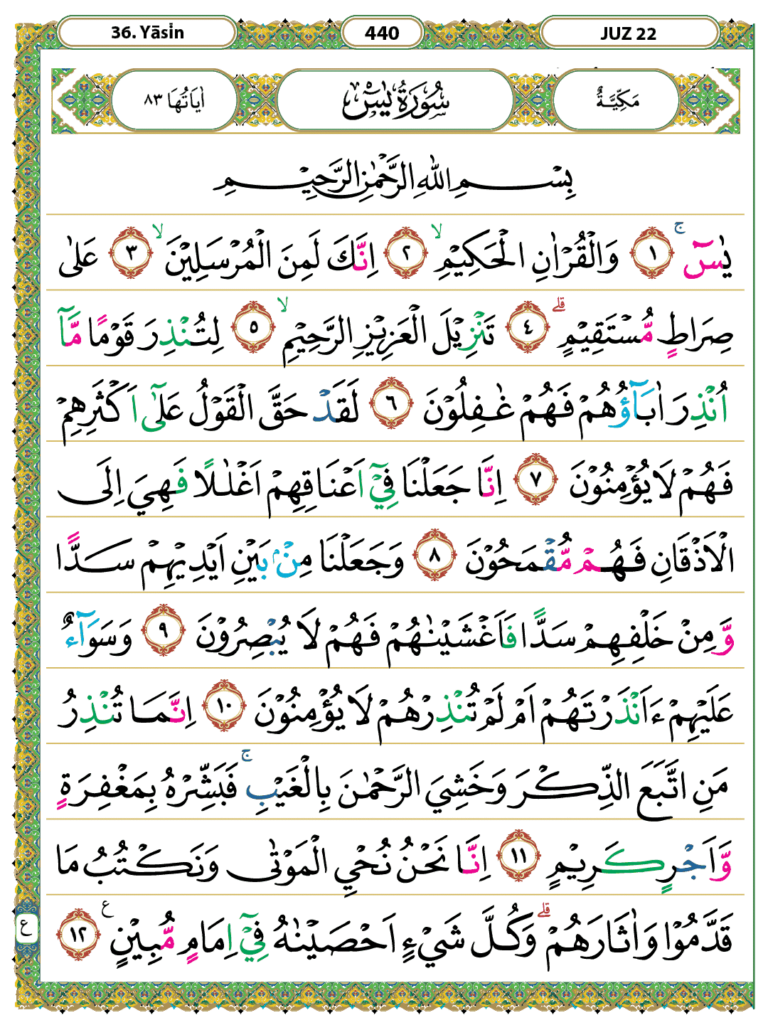 36. Yāsin
440
JUZ 22
اٰيَاتُهَا ٨٣
سُوْرَةُ يٰسٓ
مَكِّيَّةٌ
بِسْمِ اللهِ الرَّحْمٰنِ الرَّحِيْمِ
يٰسٓ ۚ ١ وَالْقُرْاٰنِ الْحَكِيْمِ ۙ ٢ اِنَّكَ لَمِنَ الْمُرْسَلِيْنَ ۙ ٣ عَلٰى
صِرَاطٍ مُّسْتَقِيْمٍ ۗ ٤ تَنْزِيْلَ الْعَزِيْزِ الرَّحِيْمِ ۙ ٥ لِتُنْذِرَ قَوْمًا مَّآ
اُنْذِرَ اٰبَاۤؤُهُمْ فَهُمْ غٰفِلُوْنَ ٦ لَقَدْ حَقَّ الْقَوْلُ عَلٰٓى اَكْثَرِهِمْ
فَهُمْ لَا يُؤْمِنُوْنَ ٧ اِنَّا جَعَلْنَا فِيْٓ اَعْنَاقِهِمْ اَغْلٰلًا فَهِيَ اِلَى
الْاَذْقَانِ فَهُمْ مُّقْمَحُوْنَ ٨ وَجَعَلْنَا مِنْۢ بَيْنِ اَيْدِيْهِمْ سَدًّا
وَّمِنْ خَلْفِهِمْ سَدًّا فَاَغْشَيْنٰهُمْ فَهُمْ لَا يُبْصِرُوْنَ ٩ وَسَوَاۤءٌ
عَلَيْهِمْ ءَاَنْذَرْتَهُمْ اَمْ لَمْ تُنْذِرْهُمْ لَا يُؤْمِنُوْنَ ١٠ اِنَّمَا تُنْذِرُ
مَنِ اتَّبَعَ الذِّكْرَ وَخَشِيَ الرَّحْمٰنَ بِالْغَيْبِۚ فَبَشِّرْهُ بِمَغْفِرَةٍ
وَّاَجْرٍ كَرِيْمٍ ١١ اِنَّا نَحْنُ نُحْيِ الْمَوْتٰى وَنَكْتُبُ مَا
قَدَّمُوْا وَاٰثَارَهُمْۗ وَكُلَّ شَيْءٍ اَحْصَيْنٰهُ فِيْٓ اِمَامٍ مُّبِيْنٍ ع ١٢
ع